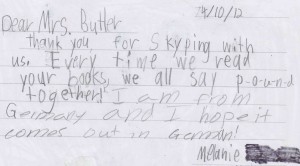 24/10/12
Dear Mrs. Butler
thank you for Skyping with
us. Every time we read
your books, we all say p-o-u-n-d
together! I am from
Germany and I hope it
comes out in German!
Melanie